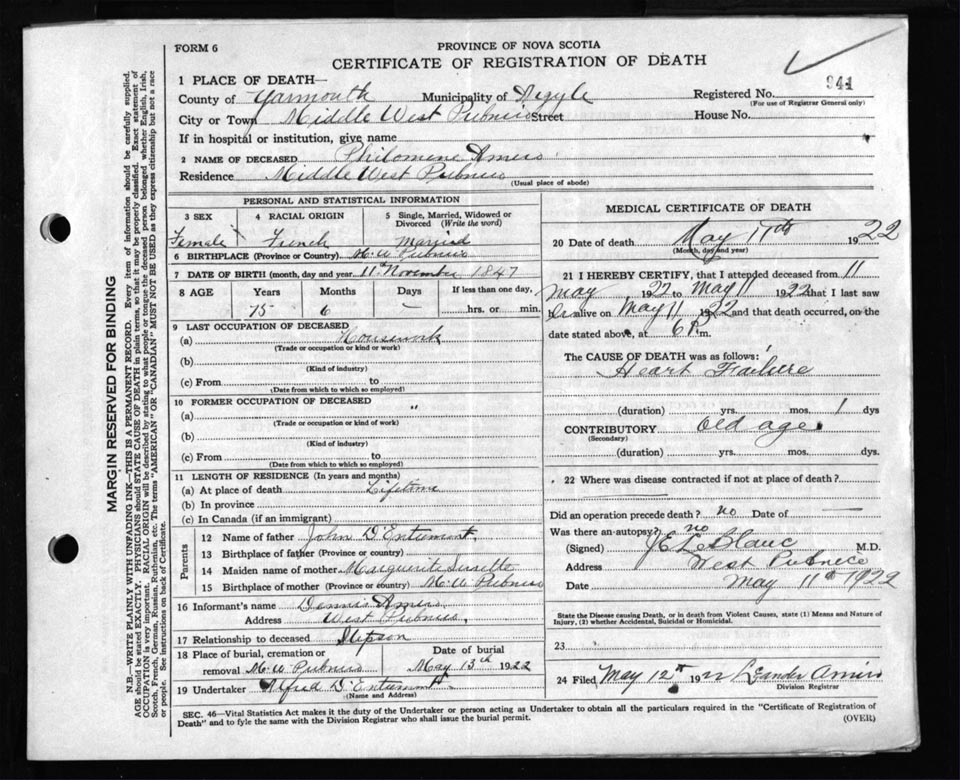 FORM 6
PROVINCE OF NOVA SCOTIA
CERTIFICATE OF REGISTRATION OF DEATH
941
1 PLACE OF DEATH—
County of Yarmouth Municipality of Argyle Registered No.
(For use of Registrar General only)
City or Town Middle West Pubnico Street House No.
If in hospital or institution, give name
2 NAME OF DECEASED Philomene Amiro
Residence Middle West Pubnico
(Usual place of abode)
PERSONAL AND STATISTICAL INFORMATION
3 SEX 4 RACIAL ORIGIN 5 Single, Married, Widowed or
Divorced (Write the word)
Female French Married
6 BIRTHPLACE (Province or Country) M. W Pubnico
7 DATE OF BIRTH (month, day and year) 11th November 1847
8 AGE Years Months Days If less than one day,
75 6 — hrs. or min.
9 LAST OCCUPATION OF DECEASED
(a) Housework
(Trade or occupation or kind of work)
(b)
(Kind of industry)
(c) From to
(Date from which to which so employed)
10 FORMER OCCUPATION OF DECEASED
(a) "
(Trade or occupation or kind of work)
(b)
(Kind of industry)
(c) From to
(Date from which to which so employed)
11 LENGTH OF RESIDENCE (In years and months)
(a) At place of death Lifetime
(b) In province
(c) In Canada (if an immigrant)
Parents
12 Name of father John D'Entremont
13 Birthplace of father (Province or country)
14 Maiden name of mother Marguerite Surette
15 Birthplace of mother (Province or country) M. W Pubnico
16 Informant's name Dennis Amiro
Address West Pubnico,
17 Relationship to deceased Stepson
18 Place of burial, cremation or Date of burial
removal M. W Pubnico May 13th 1922
19 Undertaker Alfred D'Entremont
(Name and Address)
MEDICAL CERTIFICATE OF DEATH
20 Date of death May 11th 1922
(Month, day and year)
21 I HEREBY CERTIFY, that I attended deceased from 11
May 1922 to May 11 1922 that I last saw
h alive on May 11 1922 and that death occurred, on the
date stated above, at 6 P m.
The CAUSE OF DEATH was as follows:
Heart Failure
(duration) yrs. mos. 1 dys
CONTRIBUTORY old age
(Secondary)
(duration) yrs. mos. dys.
22 Where was disease contracted if not at place of death?
Did an operation precede death? no Date of —
Was there an autopsy? no
(Signed) J E LeBlanc M.D.
Address West Pubnico
Date May 11th 1922
State the Disease causing Death, or in death from Violent Causes, state (1) Means and Nature of
Injury, (2) whether Accidental, Suicidal or Homicidal.
23
24 Filed May 12th 1922 Leander Amiro
Division Registrar
SEC. 46—Vital Statistics Act makes it the duty of the Undertaker or person acting as Undertaker to obtain all the particulars required in the "Certificate of Registration of
Death" and to fyle the same with the Division Registrar who shall issue the burial permit.
(OVER)
MARGIN RESERVED FOR BINDING
N.B.—WRITE PLAINLY WITH UNFADING INK—THIS IS A PERMANENT RECORD. Every item of information should be carefully supplied.
AGE should be stated EXACTLY. PHYSICIANS should STATE CAUSE OF DEATH in plain terms, so that it may be properly classified. Exact statement of
OCCUPATION is very important. RACIAL ORIGIN will be described by stating to what people or tongue the deceased person belonged whether English, Irish,
Scotch, French, German, Russian, Ruthenian, etc. The terms "AMERICAN" OR "CANADIAN" MUST NOT BE USED as they express citizenship but not a race
or people. See instructions on back of Certificate.